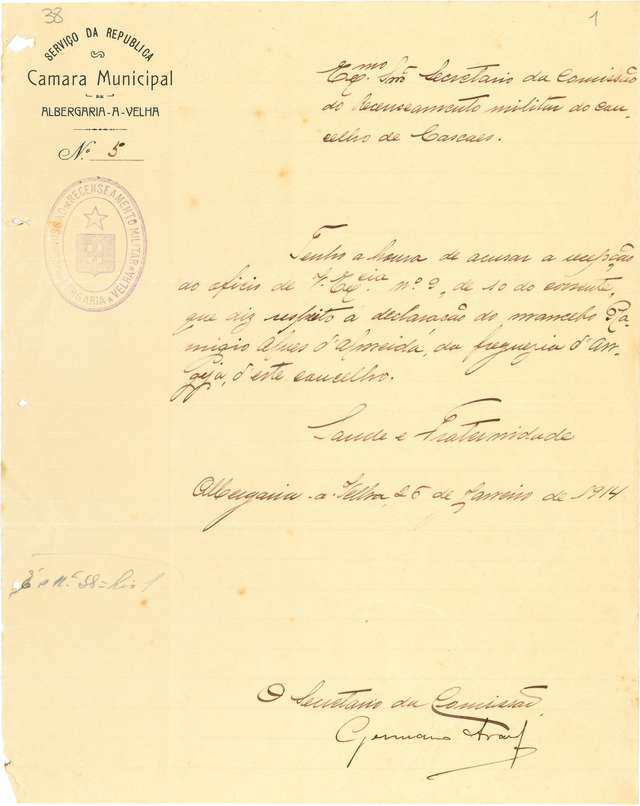 38
1
SERVIÇO DA REPUBLICA
Camara Municipal
DE
ALBERGARIA-A-VELHA
N.º 5
RECENSEAMENTO MILITAR
VELHA
Exmo. Snr. Secretario da Comissão
do Recenseamento militar do con-
celho de Cascaes.
Tenho a honra de acusar a recepção
do oficio de V. Excia. nº 9, de 10 do corrente,
que diz respeito á declaração do mancebo Re-
migio Alves d'Almeida, da freguezia d'An-
geja, d'este concelho.
Saude e Fraternidade
Albergaria-a-Velha, 26 de Janeiro de 1914
nº 38
O Secretario da Comissão,
Germano